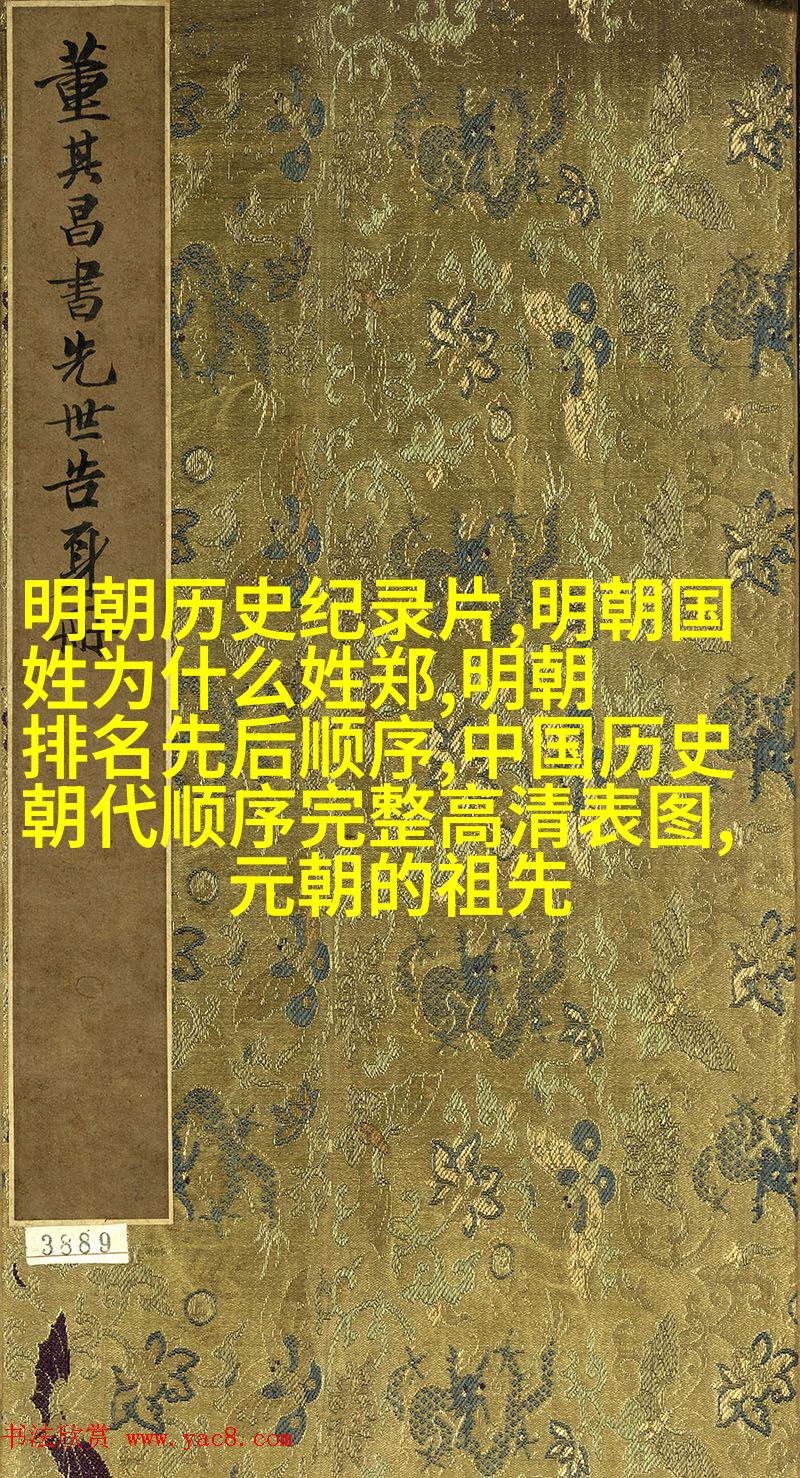 董其昌書先世告身一冊
明朝历史纪录片,明朝国
姓为什么姓郑,明朝
排名先后顺序,中国历史
朝代顺序完整高清表图,
元朝的祖先
3889
书法欣赏 www.yac8.com